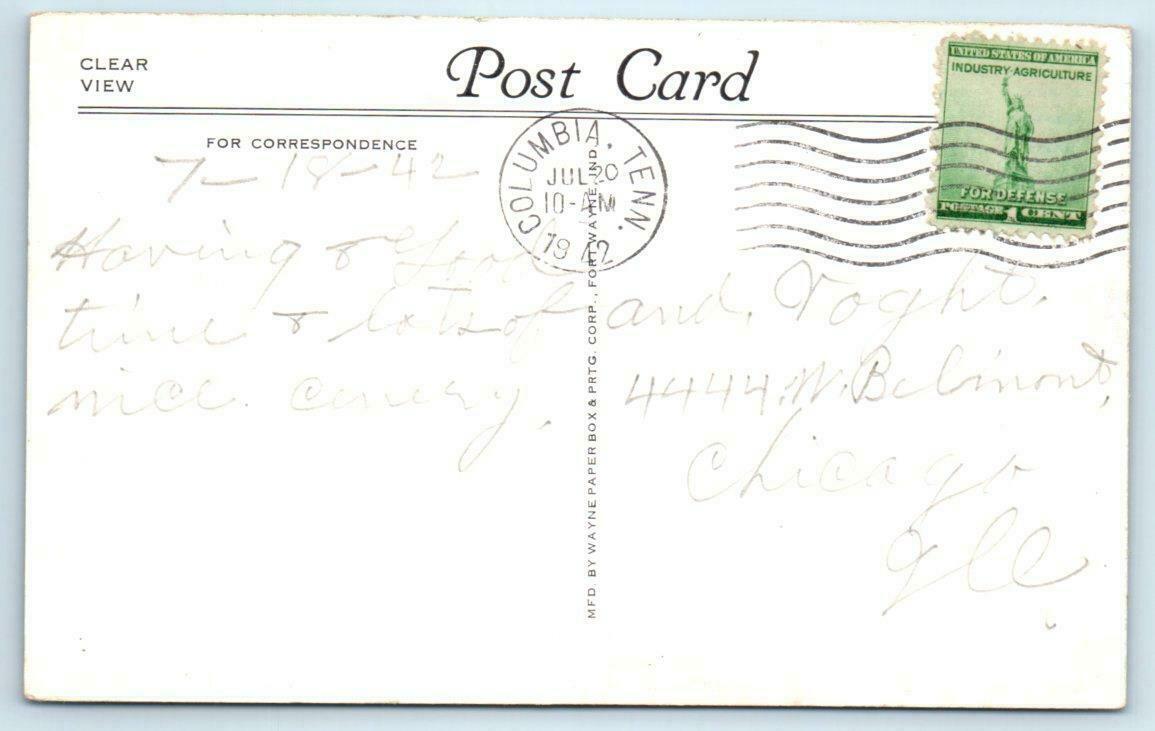 CLEAR
VIEW
Post Card
FOR CORRESPONDENCE
UNITED STATES OF AMERICA
INDUSTRY·AGRICULTURE
FOR DEFENSE
POSTAGE 1 CENT
COLUMBIA, TENN.
JUL 20
10-AM
1942
7-18-42
Having a Good
time & lots of
nice cenery.
MFD. BY WAYNE PAPER BOX & PRTG. CORP., FORT WAYNE, IND.
and. Voght.
4444. W. Belmont,
Chicago
Ill.